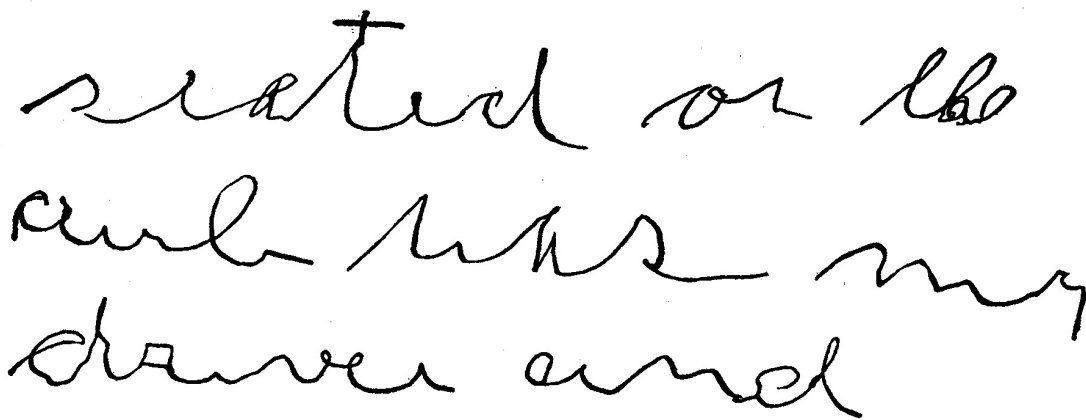 seated on the
curb was my
driver and